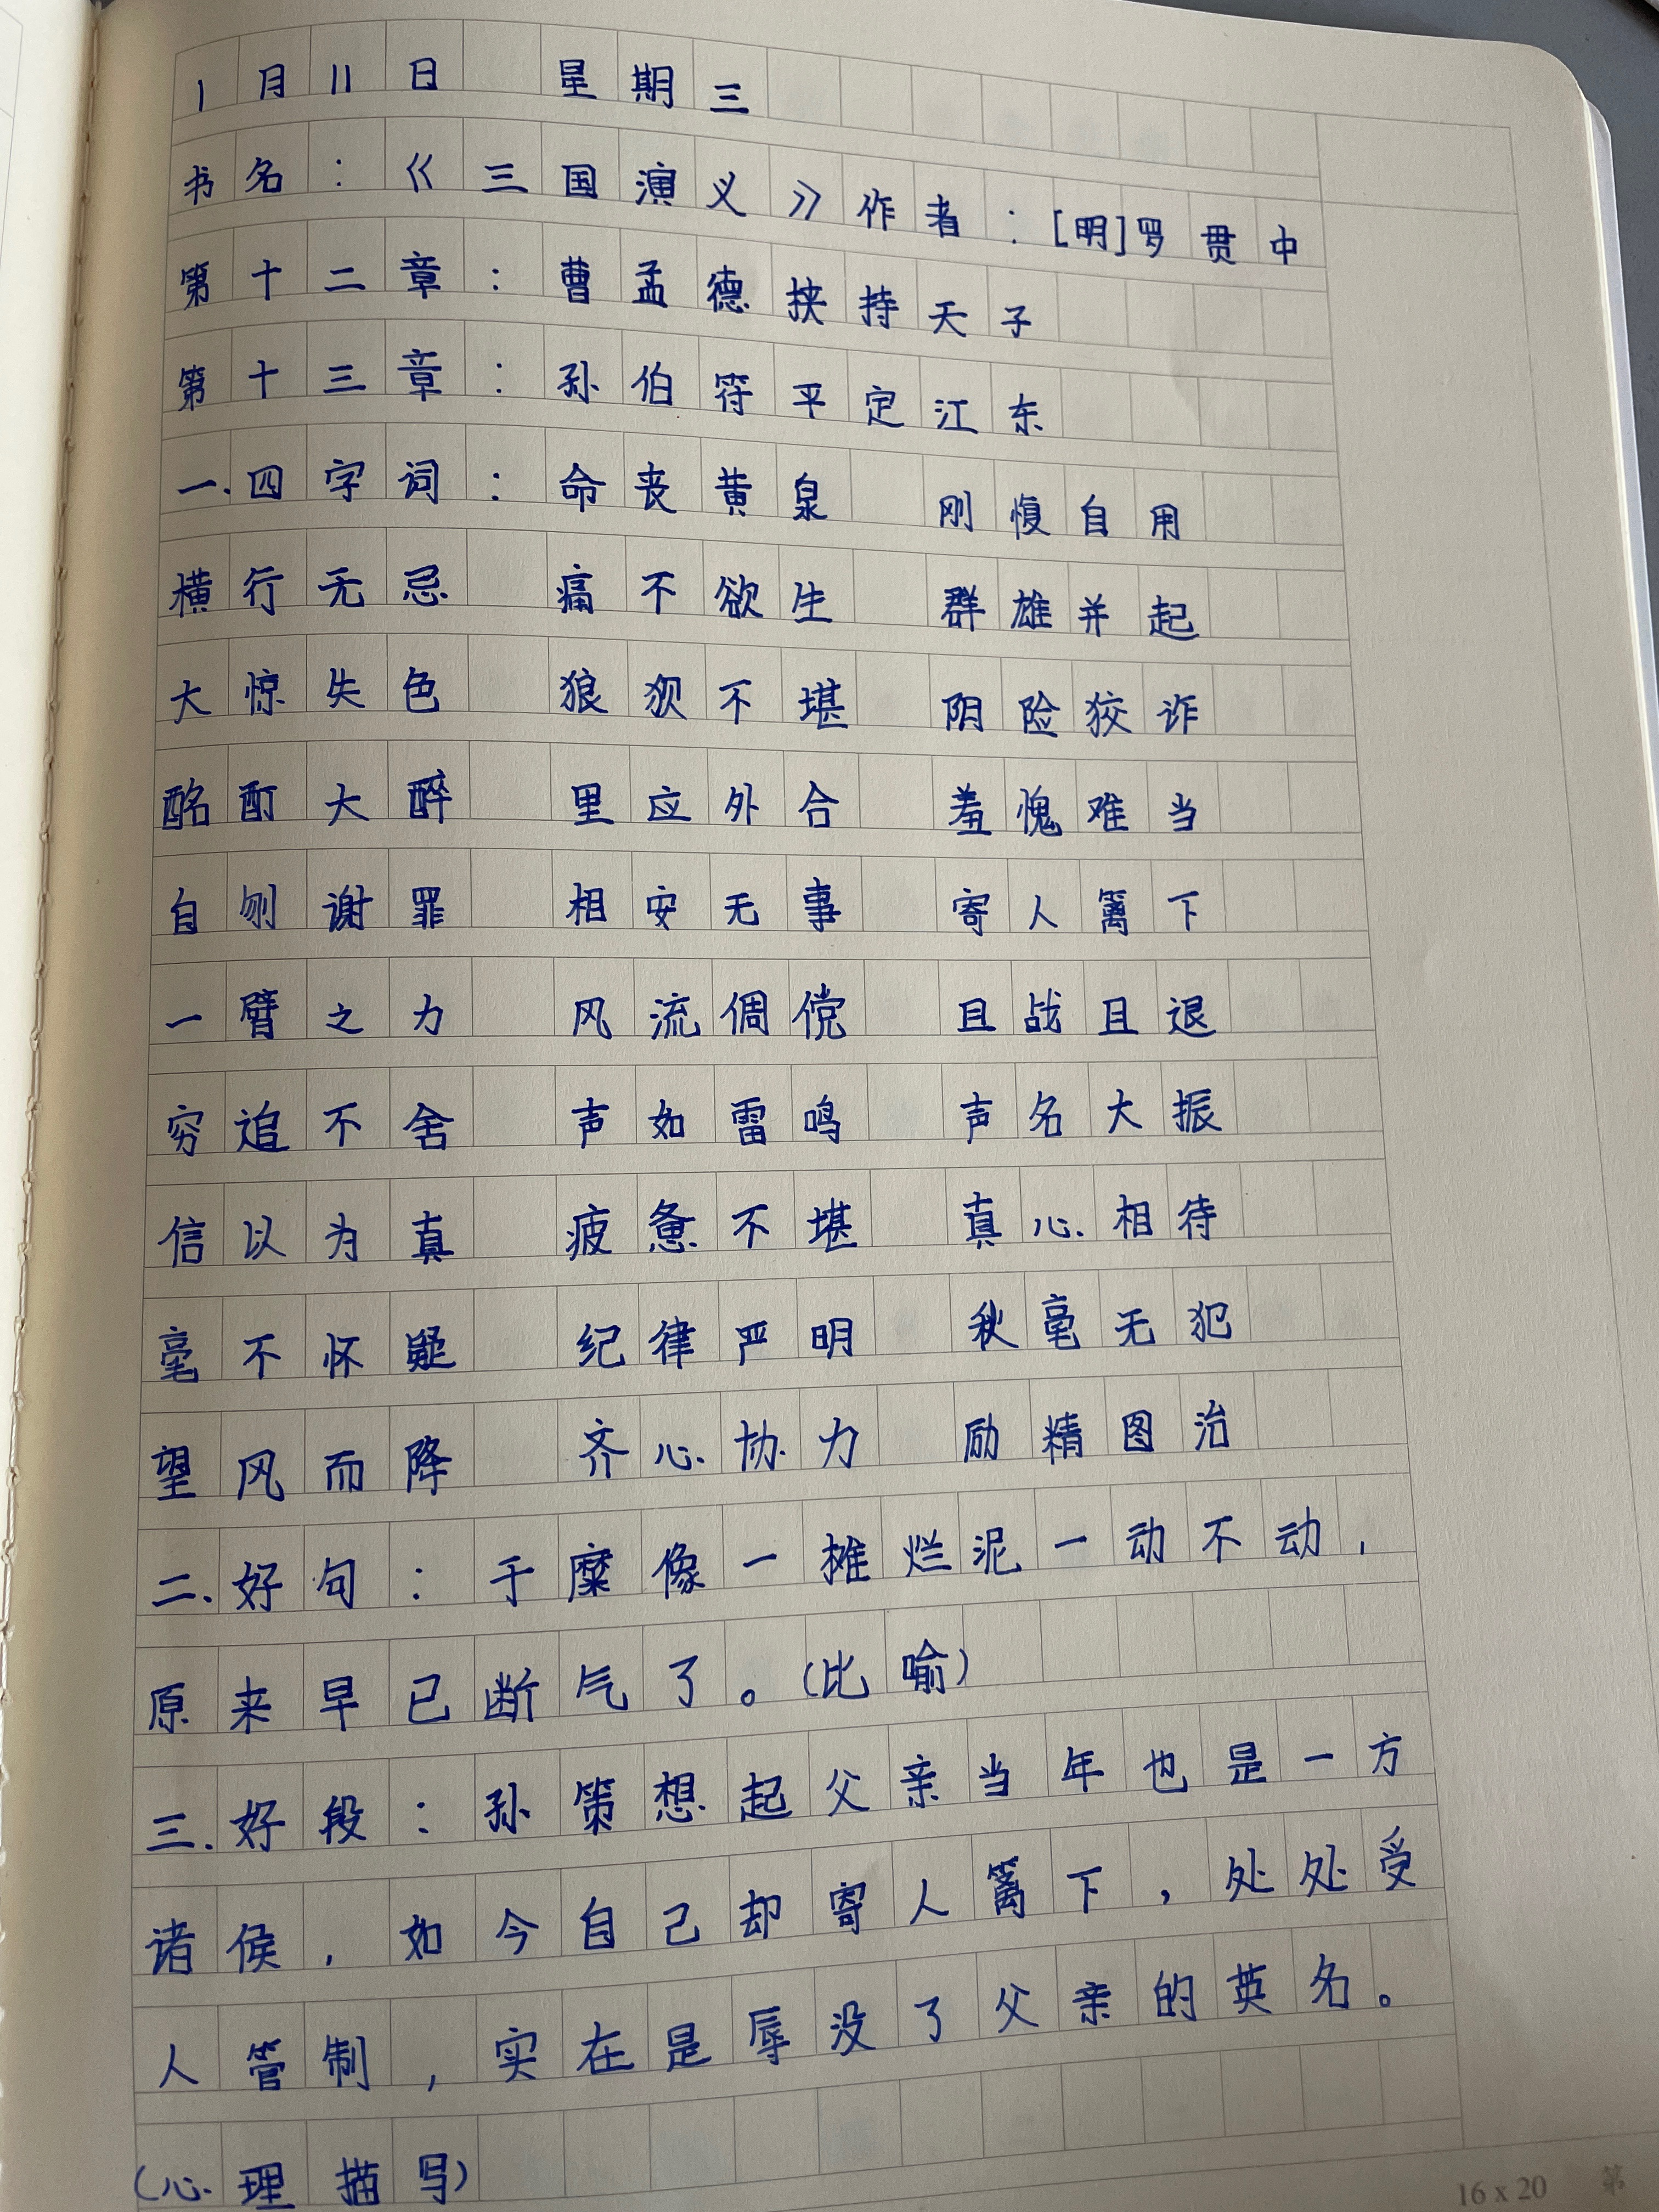 1月11日 星期三
书名：《三国演义》作者：[明]罗贯中
第十二章：曹孟德挟持天子
第十三章：孙伯符平定江东
一.四字词：命丧黄泉 刚愎自用
横行无忌 痛不欲生 群雄并起
大惊失色 狼狈不堪 阴险狡诈
酩酊大醉 里应外合 羞愧难当
自刎谢罪 相安无事 寄人篱下
一臂之力 风流倜傥 且战且退
穷追不舍 声如雷鸣 声名大振
信以为真 疲惫不堪 真心相待
毫不怀疑 纪律严明 秋毫无犯
望风而降 齐心协力 励精图治
二.好句：于糜像一摊烂泥一动不动，
原来早已断气了。(比喻)
三.好段：孙策想起父亲当年也是一方
诸侯，如今自己却寄人篱下，处处受
人管制，实在是辱没了父亲的英名。
(心理描写)
16x20 第